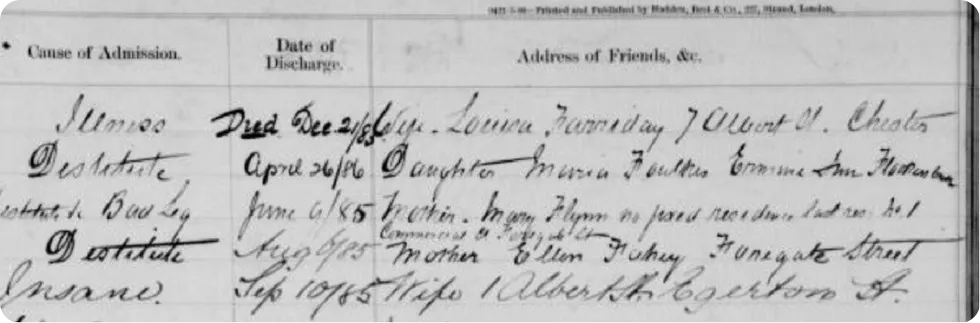 Printed and Published by Hadden, Best & Co., 227, Strand, London.
Cause of Admission. Date of Discharge. Address of Friends, &c.
Illness Died Dec 21/85 Wife. Louisa Farriday 7 Albert St. Chester
Destitute April 26/86 Daughter Maria Faulkes Ermine Inn
Bad Leg June 9/85 Mother. Mary Flynn no fixed residence last res:
Commercial Ct Foregate St
Destitute Aug 6/85 Mother Ellen Fahey Foregate Street
Insane. Sep 10/85 Wife 1 Albert St. Egerton St.